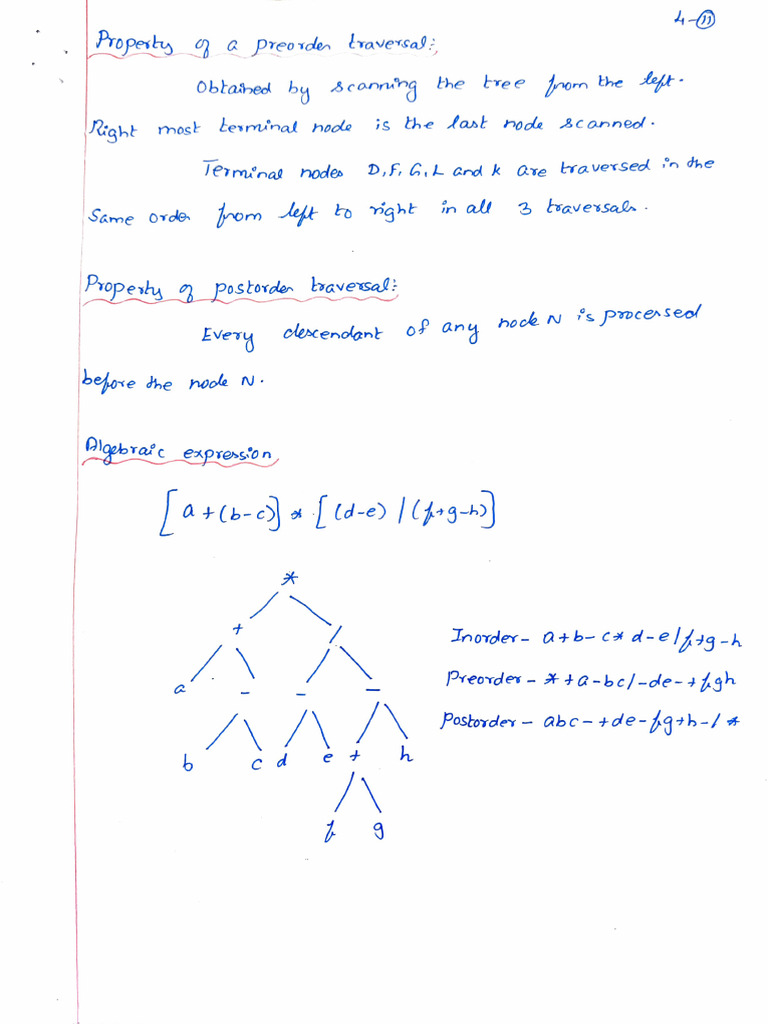 4-11
Property of a preorder traversal:
Obtained by scanning the tree from the left.
Right most terminal node is the last node scanned.
Terminal nodes D, F, G, L and K are traversed in the
Same order from left to right in all 3 traversals.
Property of postorder traversal:
Every descendant of any node N is processed
before the node N.
Algebraic expression
[a+(b-c)] * [(d-e) / (f+g-h)]
*
+ /
a - - -
b c d e + h
f g
Inorder - a+b-c*d-e/f+g-h
Preorder - *+a-bc/-de-+fgh
Postorder - abc-+de-fg+h-/*